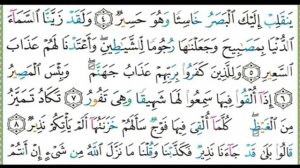 يَنقَلِبْ إِلَيْكَ ٱلْبَصَرُ خَاسِئًا وَهُوَ حَسِيرٌ ٤ وَلَقَدْ زَيَّنَّا ٱلسَّمَآءَ
ٱلدُّنْيَا بِمَصَٰبِيحَ وَجَعَلْنَٰهَا رُجُومًا لِّلشَّيَٰطِينِ وَأَعْتَدْنَا لَهُمْ عَذَابَ
ٱلسَّعِيرِ ٥ وَلِلَّذِينَ كَفَرُوا۟ بِرَبِّهِمْ عَذَابُ جَهَنَّمَ وَبِئْسَ ٱلْمَصِيرُ
٦ إِذَآ أُلْقُوا۟ فِيهَا سَمِعُوا۟ لَهَا شَهِيقًا وَهِىَ تَفُورُ ٧ تَكَادُ تَمَيَّزُ
مِنَ ٱلْغَيْظِ كُلَّمَآ أُلْقِىَ فِيهَا فَوْجٌ سَأَلَهُمْ خَزَنَتُهَآ أَلَمْ يَأْتِكُمْ نَذِيرٌ ٨
قَالُوا۟ بَلَىٰ قَدْ جَآءَنَا نَذِيرٌ فَكَذَّبْنَا وَقُلْنَا مَا نَزَّلَ ٱللَّهُ مِن شَىْءٍ إِنْ أَنتُمْ